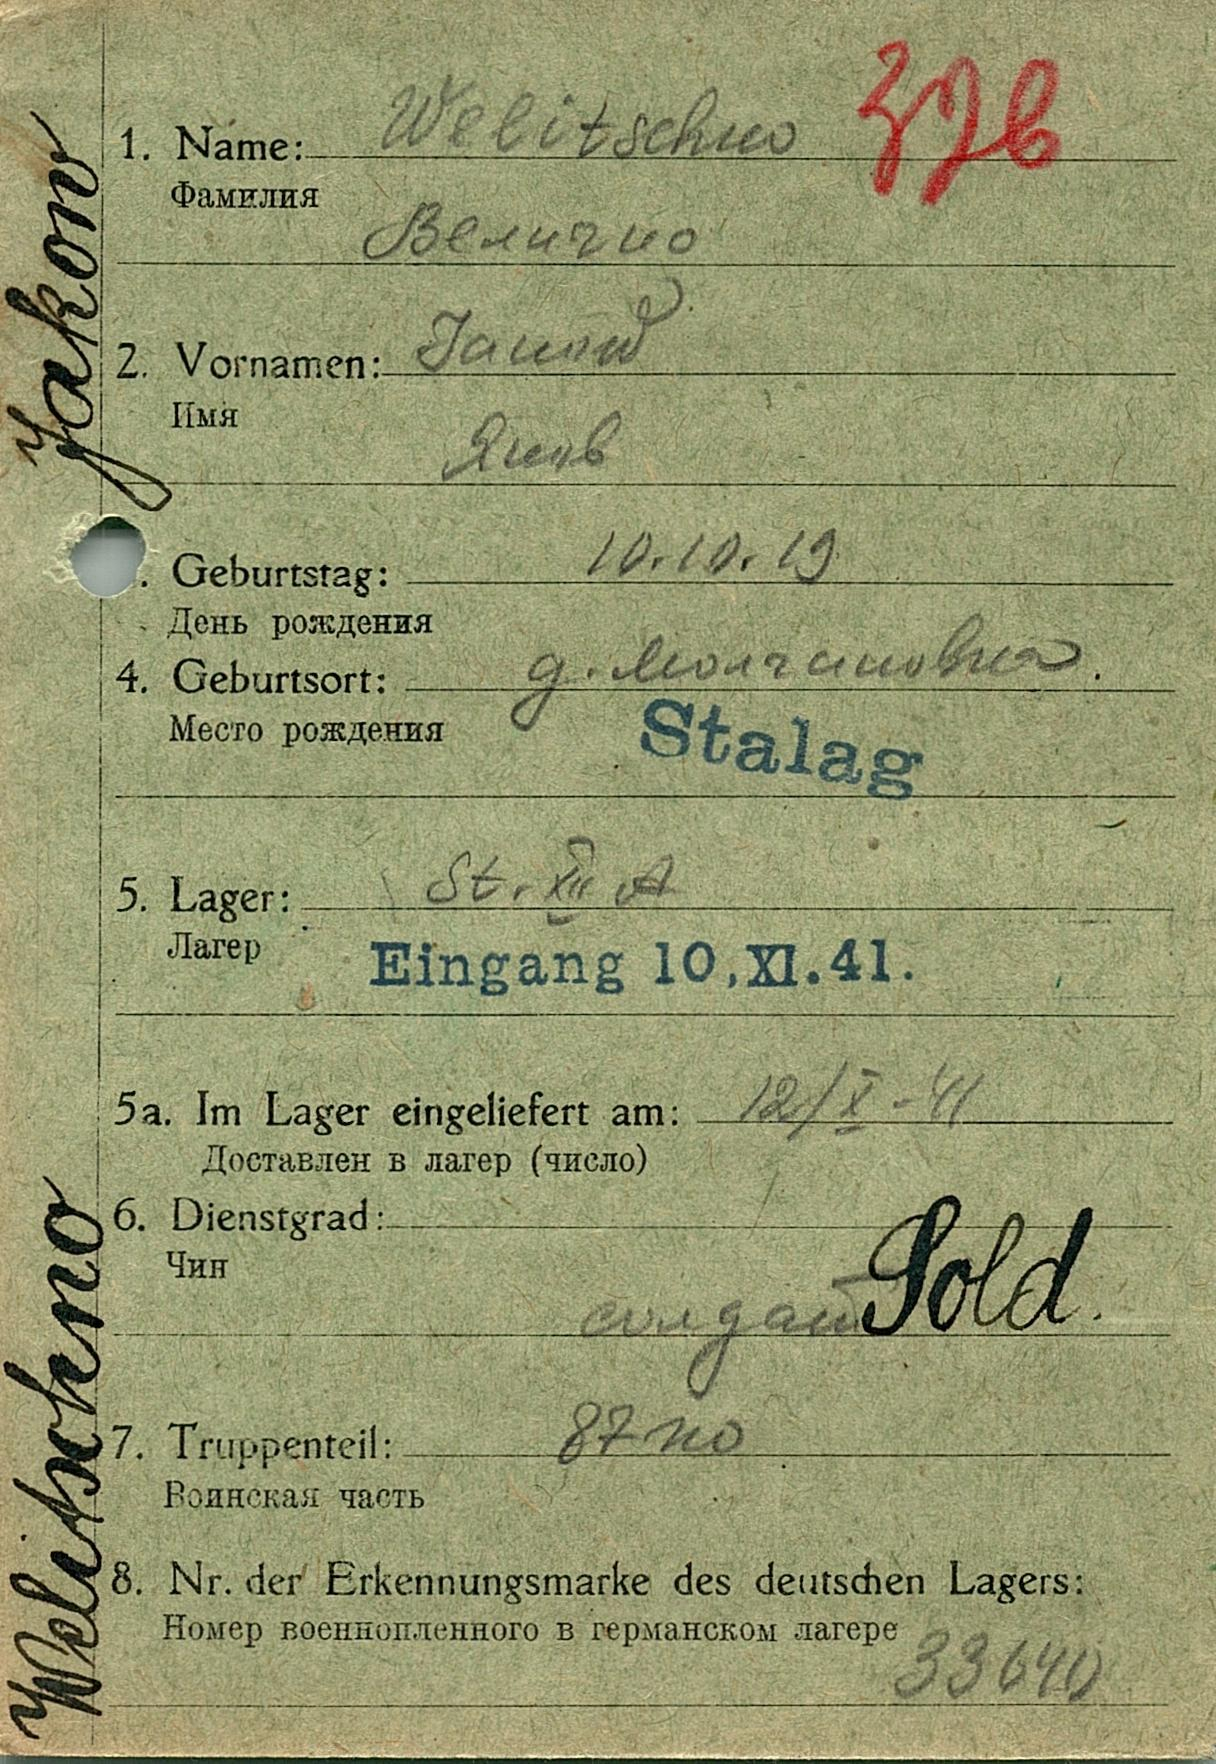 1. Name: Welitschno
Фамилия
Величко
2. Vornamen: Jakow
Имя
Яков
. Geburtstag: 10.10.19
День рождения
4. Geburtsort: д. Молчановка.
Место рождения
Stalag
5. Lager: St. XII A
Лагер
Eingang 10.XI.41.
5a. Im Lager eingeliefert am: 12/X-41
Доставлен в лагер (число)
6. Dienstgrad:
Чин
солдат Sold.
7. Truppenteil: 87 по
Воинская часть
8. Nr. der Erkennungsmarke des deutschen Lagers:
Номер военнопленного в германском лагере
33640
Welitschno Jakow